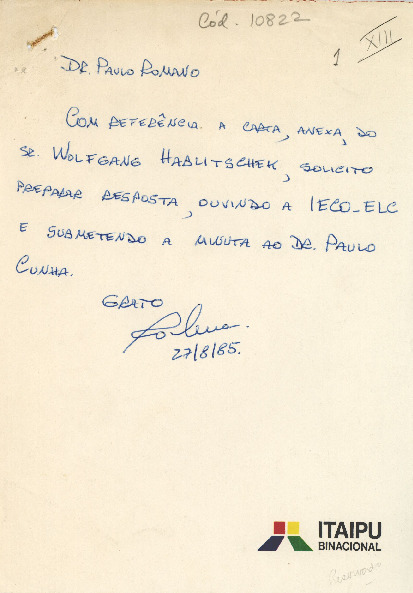 Cód. 10822
1
XIII
DR. PAULO ROMANO
COM REFERÊNCIA A CARTA, ANEXA, DO
SR. WOLFGANG HABLITSCHEK, SOLICITO
PREPARAR RESPOSTA, OUVINDO A IECO-ELC
E SUBMETENDO A MINUTA AO DR. PAULO
CUNHA.
GRATO
27/8/85.
ITAIPU
BINACIONAL